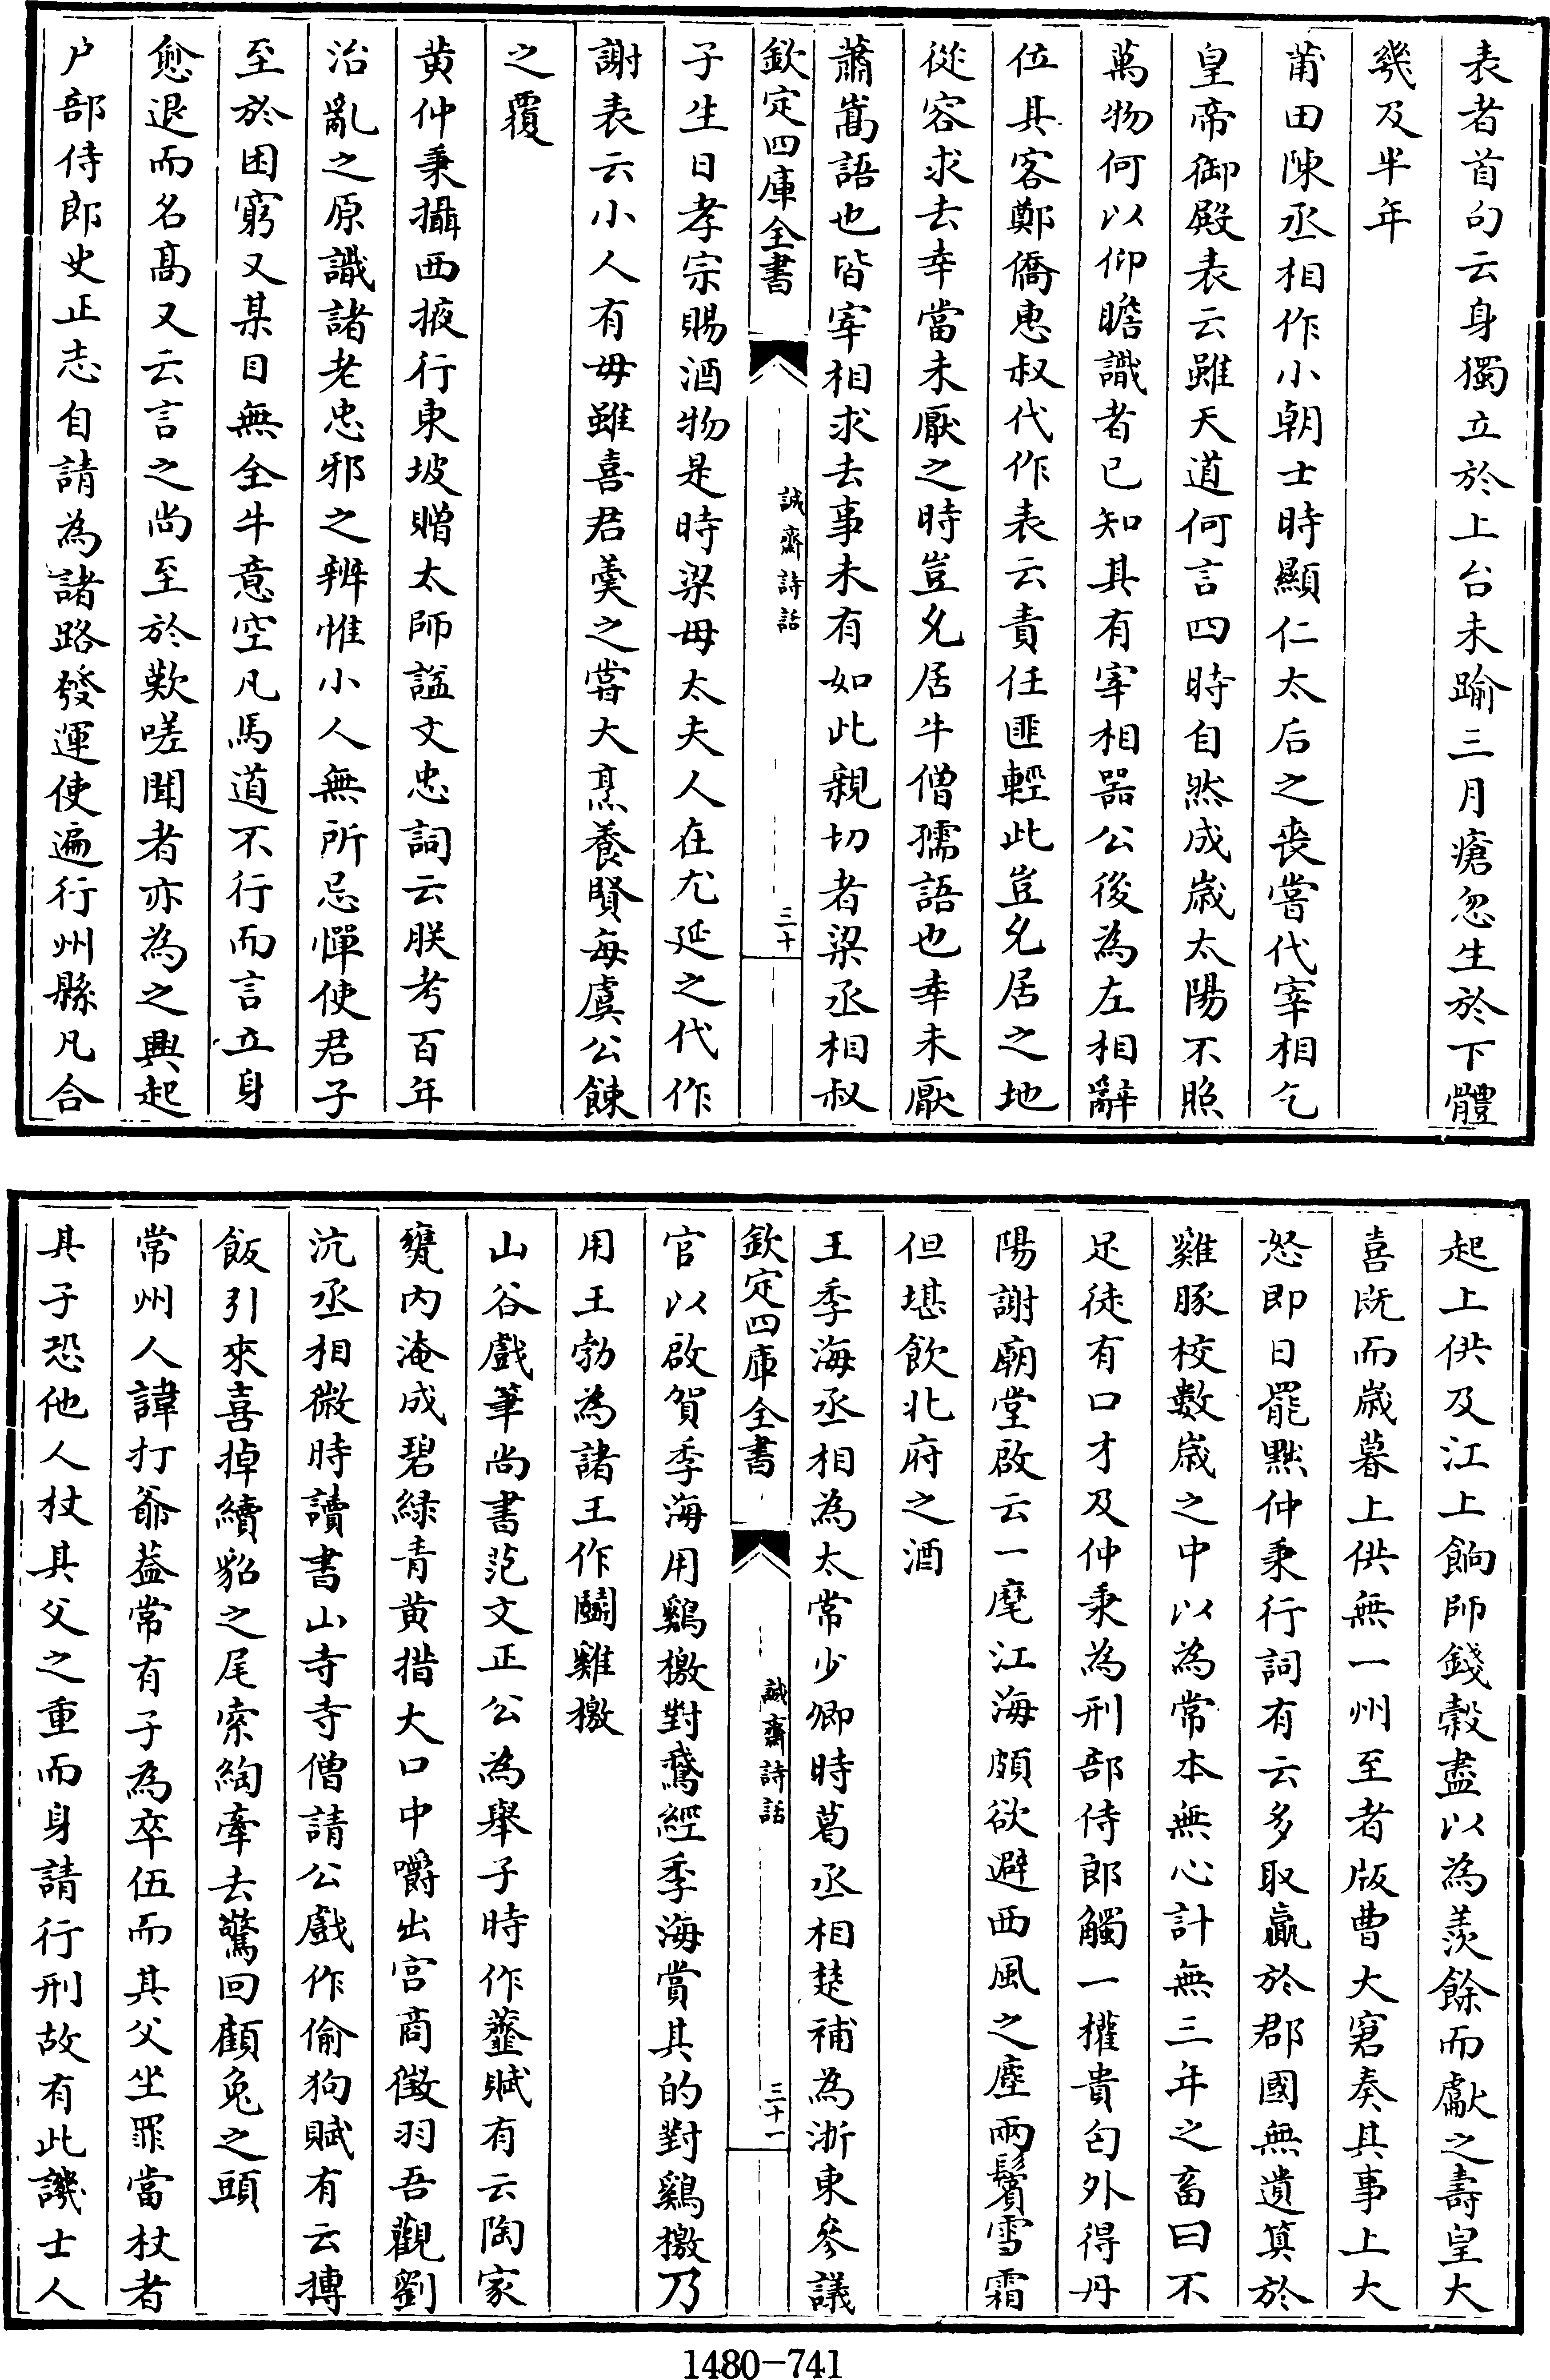 表者首句云身獨立於上台未踰三月瘡忽生於下體
幾及半年
莆田陳丞相作小朝士時顯仁太后之喪嘗代宰相乞
皇帝御殿表云雖天道何言四時自然成歲太陽不照
萬物何以仰瞻識者已知其有宰相器公後為左相辭
位其客鄭僑惠叔代作表云責任匪輕此豈乆居之地
從容求去幸當未厭之時豈乆居牛僧孺語也幸未厭
蕭嵩語也皆宰相求去事未有如此親切者梁丞相叔
欽定四庫全書
誠齋詩話
三十
子生日孝宗賜酒物是時梁母太夫人在尤延之代作
謝表云小人有母雖喜君羮之嘗大烹養賢每虞公餗
之覆
黄仲秉攝西掖行東坡贈太師諡文忠詞云朕考百年
治亂之原識諸老忠邪之辨惟小人無所忌憚使君子
至於困窮又某目無全牛意空凡馬道不行而言立身
愈退而名髙又云言之尚至於歎嗟聞者亦為之興起
户部侍郎史正志自請為諸路發運使遍行州縣凡合
起上供及江上餉師錢榖盡以為羡餘而獻之壽皇大
喜既而歲暮上供無一州至者版曹大窘奏其事上大
怒即日罷黙仲秉行詞有云多取贏於郡國無遺筭於
雞豚校數歲之中以為常本無心計無三年之畜曰不
足徒有口才及仲秉為刑部侍郎觸一權貴匄外得丹
陽謝廟堂啟云一麾江海頗欲避西風之塵兩鬢雪霜
但堪飲北府之酒
王季海丞相為太常少卿時葛丞相楚補為浙東參議
欽定四庫全書
誠齋詩話
三十一
官以啟賀季海用鷄檄對鵞經季海賞其的對鷄檄乃
用王勃為諸王作鬬雞檄
山谷戲筆尚書范文正公為舉子時作虀賦有云陶家
甕内淹成碧緑青黄措大口中嚼出宫商徵羽吾觀劉
沆丞相微時讀書山寺寺僧請公戲作偷狗賦有云搏
飯引來喜掉續貂之尾索綯牽去驚回顧兔之頭
常州人諱打爺葢常有子為卒伍而其父坐罪當杖者
其子恐他人杖其父之重而身請行刑故有此譏士人
1480-741